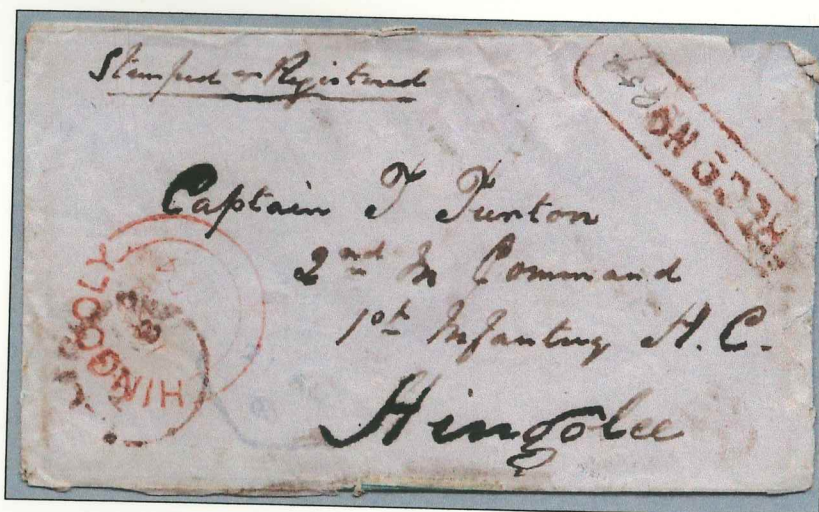 Stamped & Registered
REGD No
Captain T Turton
2nd In Command
1st Infantry H.C.
Hingolee
HINGOLY